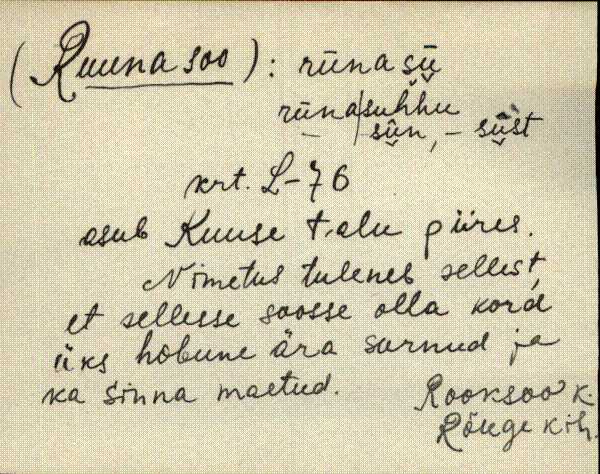 (Ruuna soo): rūna sū
rūna|suhhu
sūn, – sūst
krt. L-76
asub Kuuse talu piires.
Nimetus tuleneb sellest,
et sellesse soosse olla kord
üks hobune ära surnud ja
ka sinna maetud.
Rooksoo k.
Rõuge kih.